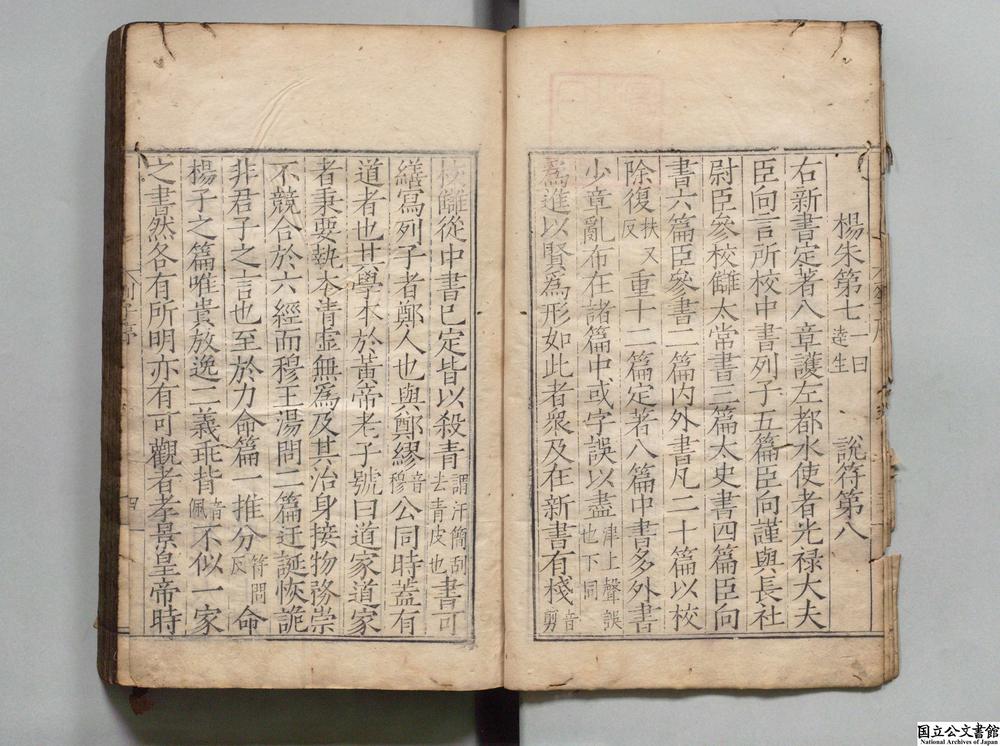 楊朱第七 一曰達生 說符第八
右新書定著八章護左都水使者光祿大夫
臣向言所校中書列子五篇臣向謹與長社
尉臣參校讎太常書三篇太史書四篇臣向
書六篇臣參書二篇內外書凡二十篇以校
除復扶又反重十二篇定著八篇中書多外書
少章亂布在諸篇中或字誤以盡津上聲誤也下同
為進以賢為形如此者眾及在新書有棧音剪
校讎從中書已定皆以殺青謂汗簡刮去青皮也書可
繕寫列子者鄭人也與鄭繆音穆公同時蓋有
道者也其學本於黃帝老子號曰道家道家
者秉要執本清虛無為及其治身接物務崇
不競合於六經而穆王湯問二篇迂誕恢詭
非君子之言也至於力命篇一推分符問反命
楊子之篇唯貴放逸二義乖背音佩不似一家
之書然各有所明亦有可觀者孝景皇帝時
国立公文書館
National Archives of Japan